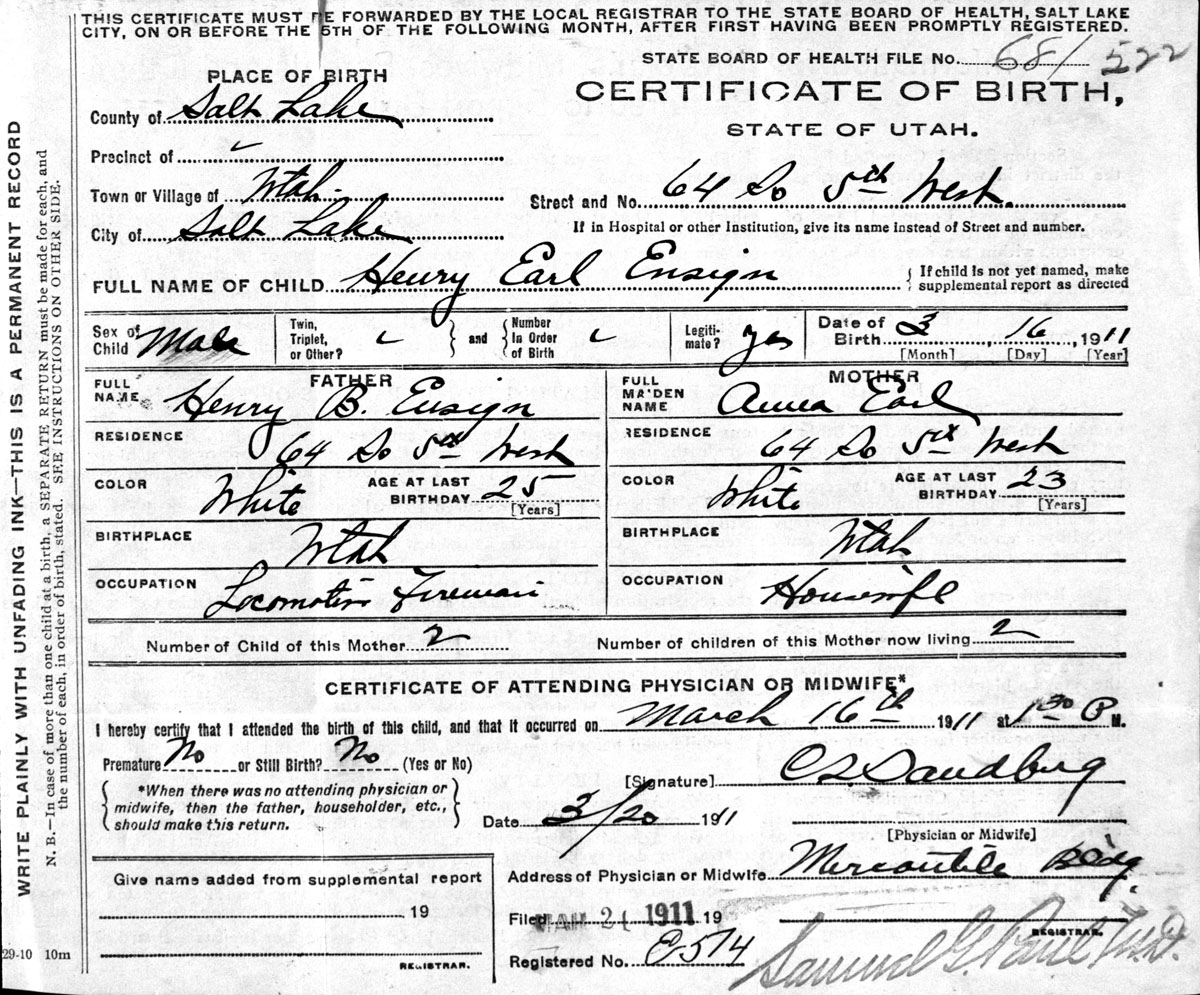 THIS CERTIFICATE MUST BE FORWARDED BY THE LOCAL REGISTRAR TO THE STATE BOARD OF HEALTH, SALT LAKE
CITY, ON OR BEFORE THE 5TH OF THE FOLLOWING MONTH, AFTER FIRST HAVING BEEN PROMPTLY REGISTERED.
STATE BOARD OF HEALTH FILE No. 681 522
PLACE OF BIRTH
CERTIFICATE OF BIRTH,
STATE OF UTAH.
County of Salt Lake
Precinct of
Town or Village of Utah.
Street and No. 64 So 5th West.
City of Salt Lake
If in Hospital or other Institution, give its name instead of Street and number.
FULL NAME OF CHILD Henry Earl Ensign
{ If child is not yet named, make
supplemental report as directed
Sex of Child Male
Twin, Triplet, or Other?
and
Number In Order of Birth
Legitimate? yes
Date of Birth 3, 16, 1911
[Month] [Day] [Year]
FATHER
FULL NAME Henry B. Ensign
RESIDENCE 64 So 5th West
COLOR White AGE AT LAST BIRTHDAY 25
[Years]
BIRTHPLACE Utah
OCCUPATION Locomotive Fireman
MOTHER
FULL MAIDEN NAME Anna Earl
RESIDENCE 64 So 5th West
COLOR White AGE AT LAST BIRTHDAY 23
[Years]
BIRTHPLACE Utah
OCCUPATION Housewife
Number of Child of this Mother 2 Number of children of this Mother now living 2
CERTIFICATE OF ATTENDING PHYSICIAN OR MIDWIFE*
I hereby certify that I attended the birth of this child, and that it occurred on March 16th 1911 at 1:30 P M.
Premature No or Still Birth? No (Yes or No)
[Signature] C L Sandberg
*When there was no attending physician or
midwife, then the father, householder, etc.,
should make this return.
Date 3/20 1911
[Physician or Midwife]
Address of Physician or Midwife Mercantile Bldg.
Give name added from supplemental report
19
REGISTRAR.
Filed 21 1911 19
Registered No. E-514
REGISTRAR.
Samuel G. Paul M.D.
29-10 10m
WRITE PLAINLY WITH UNFADING INK—THIS IS A PERMANENT RECORD
N. B.—In case of more than one child at a birth, a SEPARATE RETURN must be made for each, and
the number of each, in order of birth, stated. SEE INSTRUCTIONS ON OTHER SIDE.